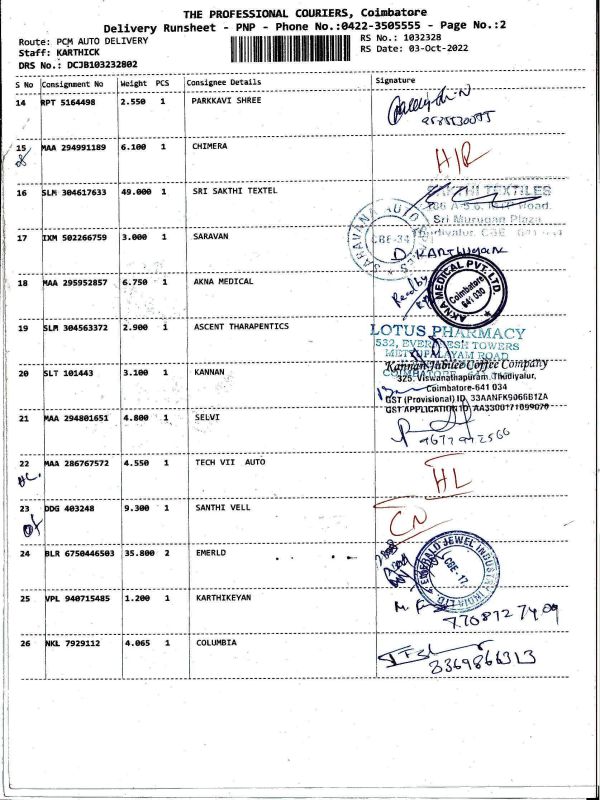 THE PROFESSIONAL COURIERS, Coimbatore
Delivery Runsheet - PNP - Phone No.:0422-3505555 - Page No.:2
Route: PCM AUTO DELIVERY
Staff: KARTHICK
DRS No.: DCJB103232802
RS No.: 1032328
RS Date: 03-Oct-2022
S No Consignment No Weight PCS Consignee Details Signature
14 RPT 5164498 2.550 1 PARKKAVI SHREE
15 MAA 294991189 6.100 1 CHIMERA
H/R
16 SLM 304617633 49.000 1 SRI SAKTHI TEXTEL
SAKTHI TEXTILES
Sri Murugan Plaza
17 IXM 502266759 3.000 1 SARAVAN
SARAVANA AUTO
CBE-34
D. KARTHIGAN
18 MAA 295952857 6.750 1 AKNA MEDICAL
AKNA MEDICAL PVT. LTD.
Coimbatore
641 030
19 SLM 304563372 2.900 1 ASCENT THARAPENTICS
LOTUS PHARMACY
532, EVEREST TOWERS
METTUPALAYAM ROAD
COIMBATORE
20 SLT 101443 3.100 1 KANNAN
Kannan Jubilee Coffee Company
325, Viswanathapuram, Thudiyalur,
Coimbatore-641 034
GST (Provisional) ID 33AANFK9066B1ZA
21 MAA 294801651 4.800 1 SELVI
22 MAA 286767572 4.550 1 TECH VII AUTO
HL
23 DDG 403248 9.300 1 SANTHI VELL
CN
24 BLR 6750446503 35.800 2 EMERLD
EMERALD JEWEL INDUSTRY INDIA LTD
CBE-17
25 VPL 940715485 1.200 1 KARTHIKEYAN
26 NKL 7929112 4.065 1 COLUMBIA